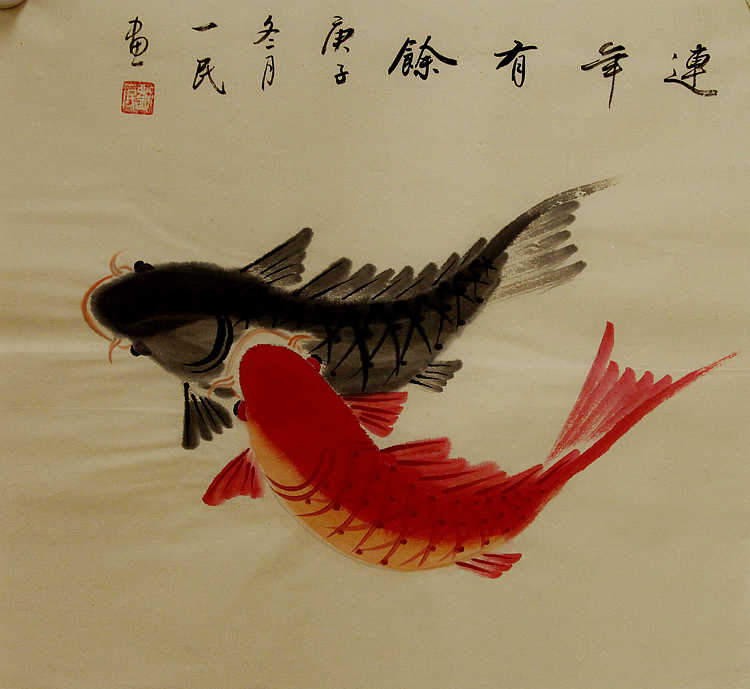 連年有餘
庚子
冬月
一民
畫